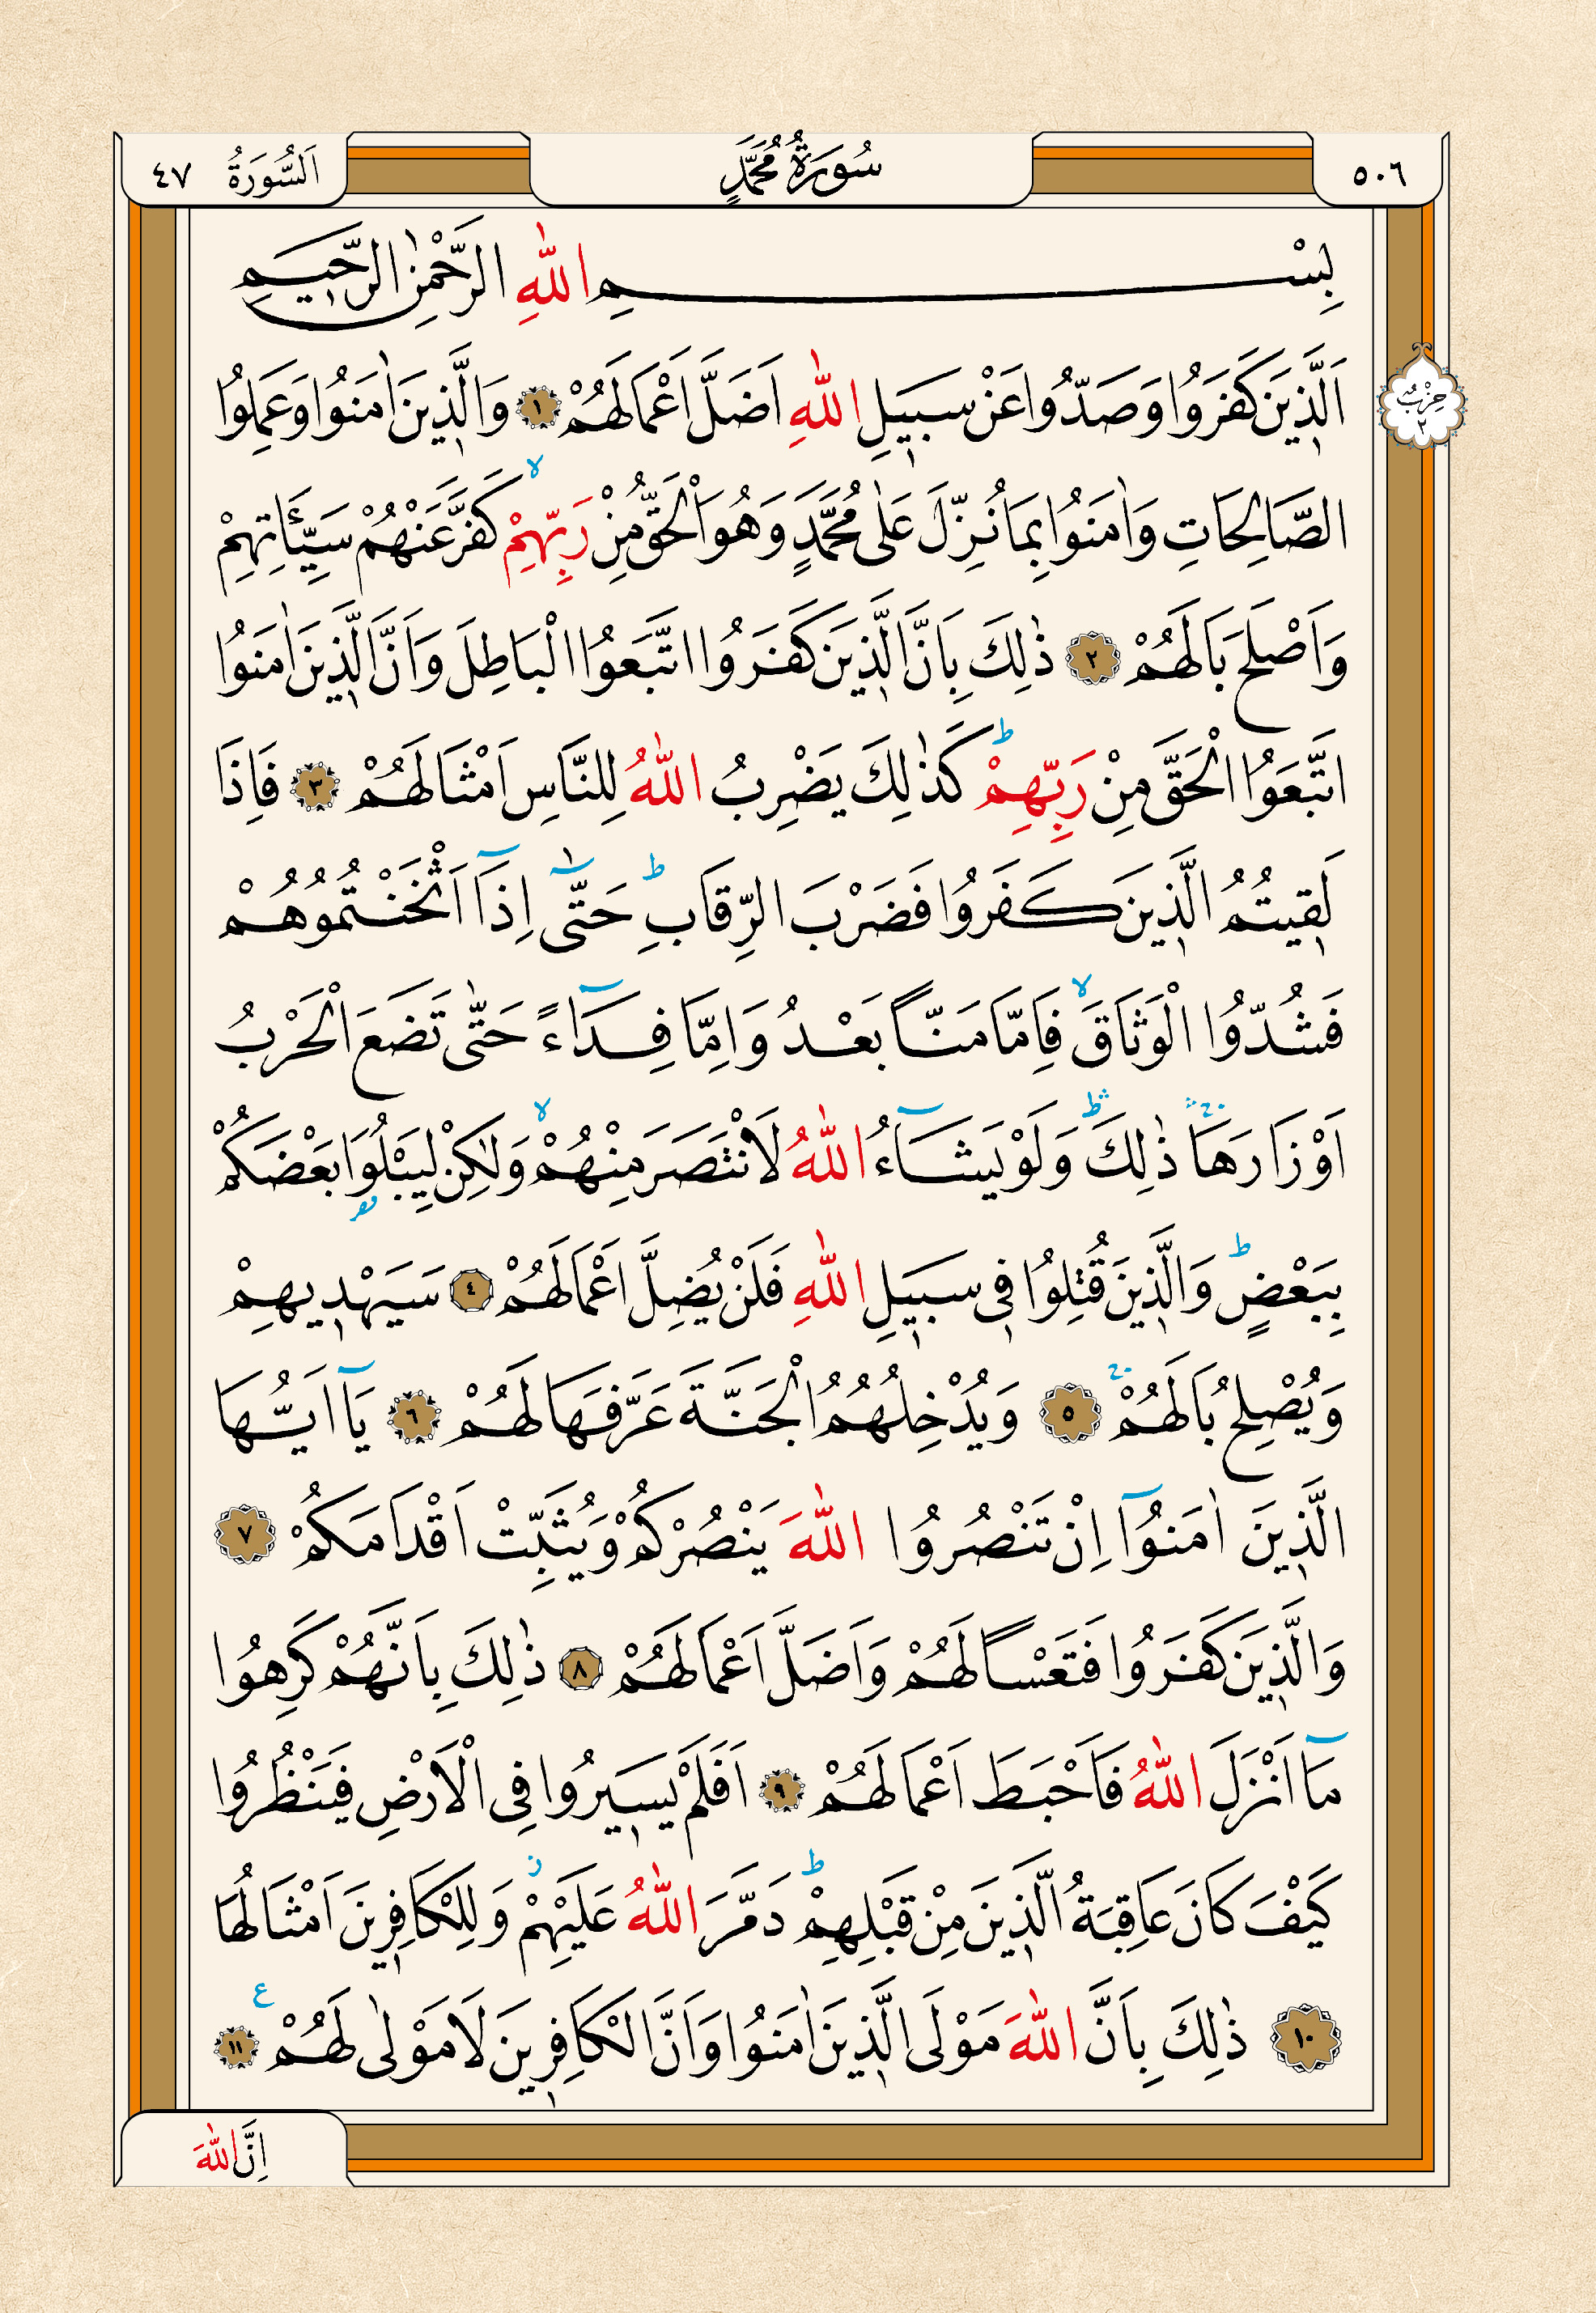 ٥٠٦ سُورَةُ مُحَمَّدٍ اَلسُّورَةُ ٤٧
بِسْمِ اللّٰهِ الرَّحْمٰنِ الرَّحٖيمِ
اَلَّذٖينَ كَفَرُوا وَصَدُّوا عَنْ سَبٖيلِ اللّٰهِ اَضَلَّ اَعْمَالَهُمْ ١ وَالَّذٖينَ اٰمَنُوا وَعَمِلُوا
حِزْبٌ ٢
الصَّالِحَاتِ وَاٰمَنُوا بِمَا نُزِّلَ عَلٰى مُحَمَّدٍ وَهُوَ الْحَقُّ مِنْ رَبِّهِمْۙ كَفَّرَ عَنْهُمْ سَيِّـَٔاتِهِمْ
وَاَصْلَحَ بَالَهُمْ ٢ ذٰلِكَ بِاَنَّ الَّذٖينَ كَفَرُوا اتَّبَعُوا الْبَاطِلَ وَاَنَّ الَّذٖينَ اٰمَنُوا
اتَّبَعُوا الْحَقَّ مِنْ رَبِّهِمْؕ كَذٰلِكَ يَضْرِبُ اللّٰهُ لِلنَّاسِ اَمْثَالَهُمْ ٣ فَاِذَا
لَقٖيتُمُ الَّذٖينَ كَفَرُوا فَضَرْبَ الرِّقَابِؕ حَتّٰٓى اِذَٓا اَثْخَنْتُمُوهُمْ
فَشُدُّوا الْوَثَاقَۙ فَاِمَّا مَنًّا بَعْدُ وَاِمَّا فِدَٓاءً حَتّٰى تَضَعَ الْحَرْبُ
اَوْزَارَهَاۛۚ ذٰلِكَۛؕ وَلَوْ يَشَٓاءُ اللّٰهُ لَانْتَصَرَ مِنْهُمْۙ وَلٰكِنْ لِيَبْلُوَا۬ بَعْضَكُمْ
بِبَعْضٍؕ وَالَّذٖينَ قُتِلُوا فٖى سَبٖيلِ اللّٰهِ فَلَنْ يُضِلَّ اَعْمَالَهُمْ ٤ سَيَهْدٖيهِمْ
وَيُصْلِحُ بَالَهُمْۚ ٥ وَيُدْخِلُهُمُ الْجَنَّةَ عَرَّفَهَا لَهُمْ ٦ يَٓا اَيُّهَا
الَّذٖينَ اٰمَنُٓوا اِنْ تَنْصُرُوا اللّٰهَ يَنْصُرْكُمْ وَيُثَبِّتْ اَقْدَامَكُمْ ٧
وَالَّذٖينَ كَفَرُوا فَتَعْسًا لَهُمْ وَاَضَلَّ اَعْمَالَهُمْ ٨ ذٰلِكَ بِاَنَّهُمْ كَرِهُوا
مَٓا اَنْزَلَ اللّٰهُ فَاَحْبَطَ اَعْمَالَهُمْ ٩ اَفَلَمْ يَسٖيرُوا فِى الْاَرْضِ فَيَنْظُرُوا
كَيْفَ كَانَ عَاقِبَةُ الَّذٖينَ مِنْ قَبْلِهِمْؕ دَمَّرَ اللّٰهُ عَلَيْهِمْؗ وَلِلْكَافِرٖينَ اَمْثَالُهَا
١٠ ذٰلِكَ بِاَنَّ اللّٰهَ مَوْلَى الَّذٖينَ اٰمَنُوا وَاَنَّ الْكَافِرٖينَ لَا مَوْلٰى لَهُمْ ࣖ ١١
اِنَّ اللّٰهَ